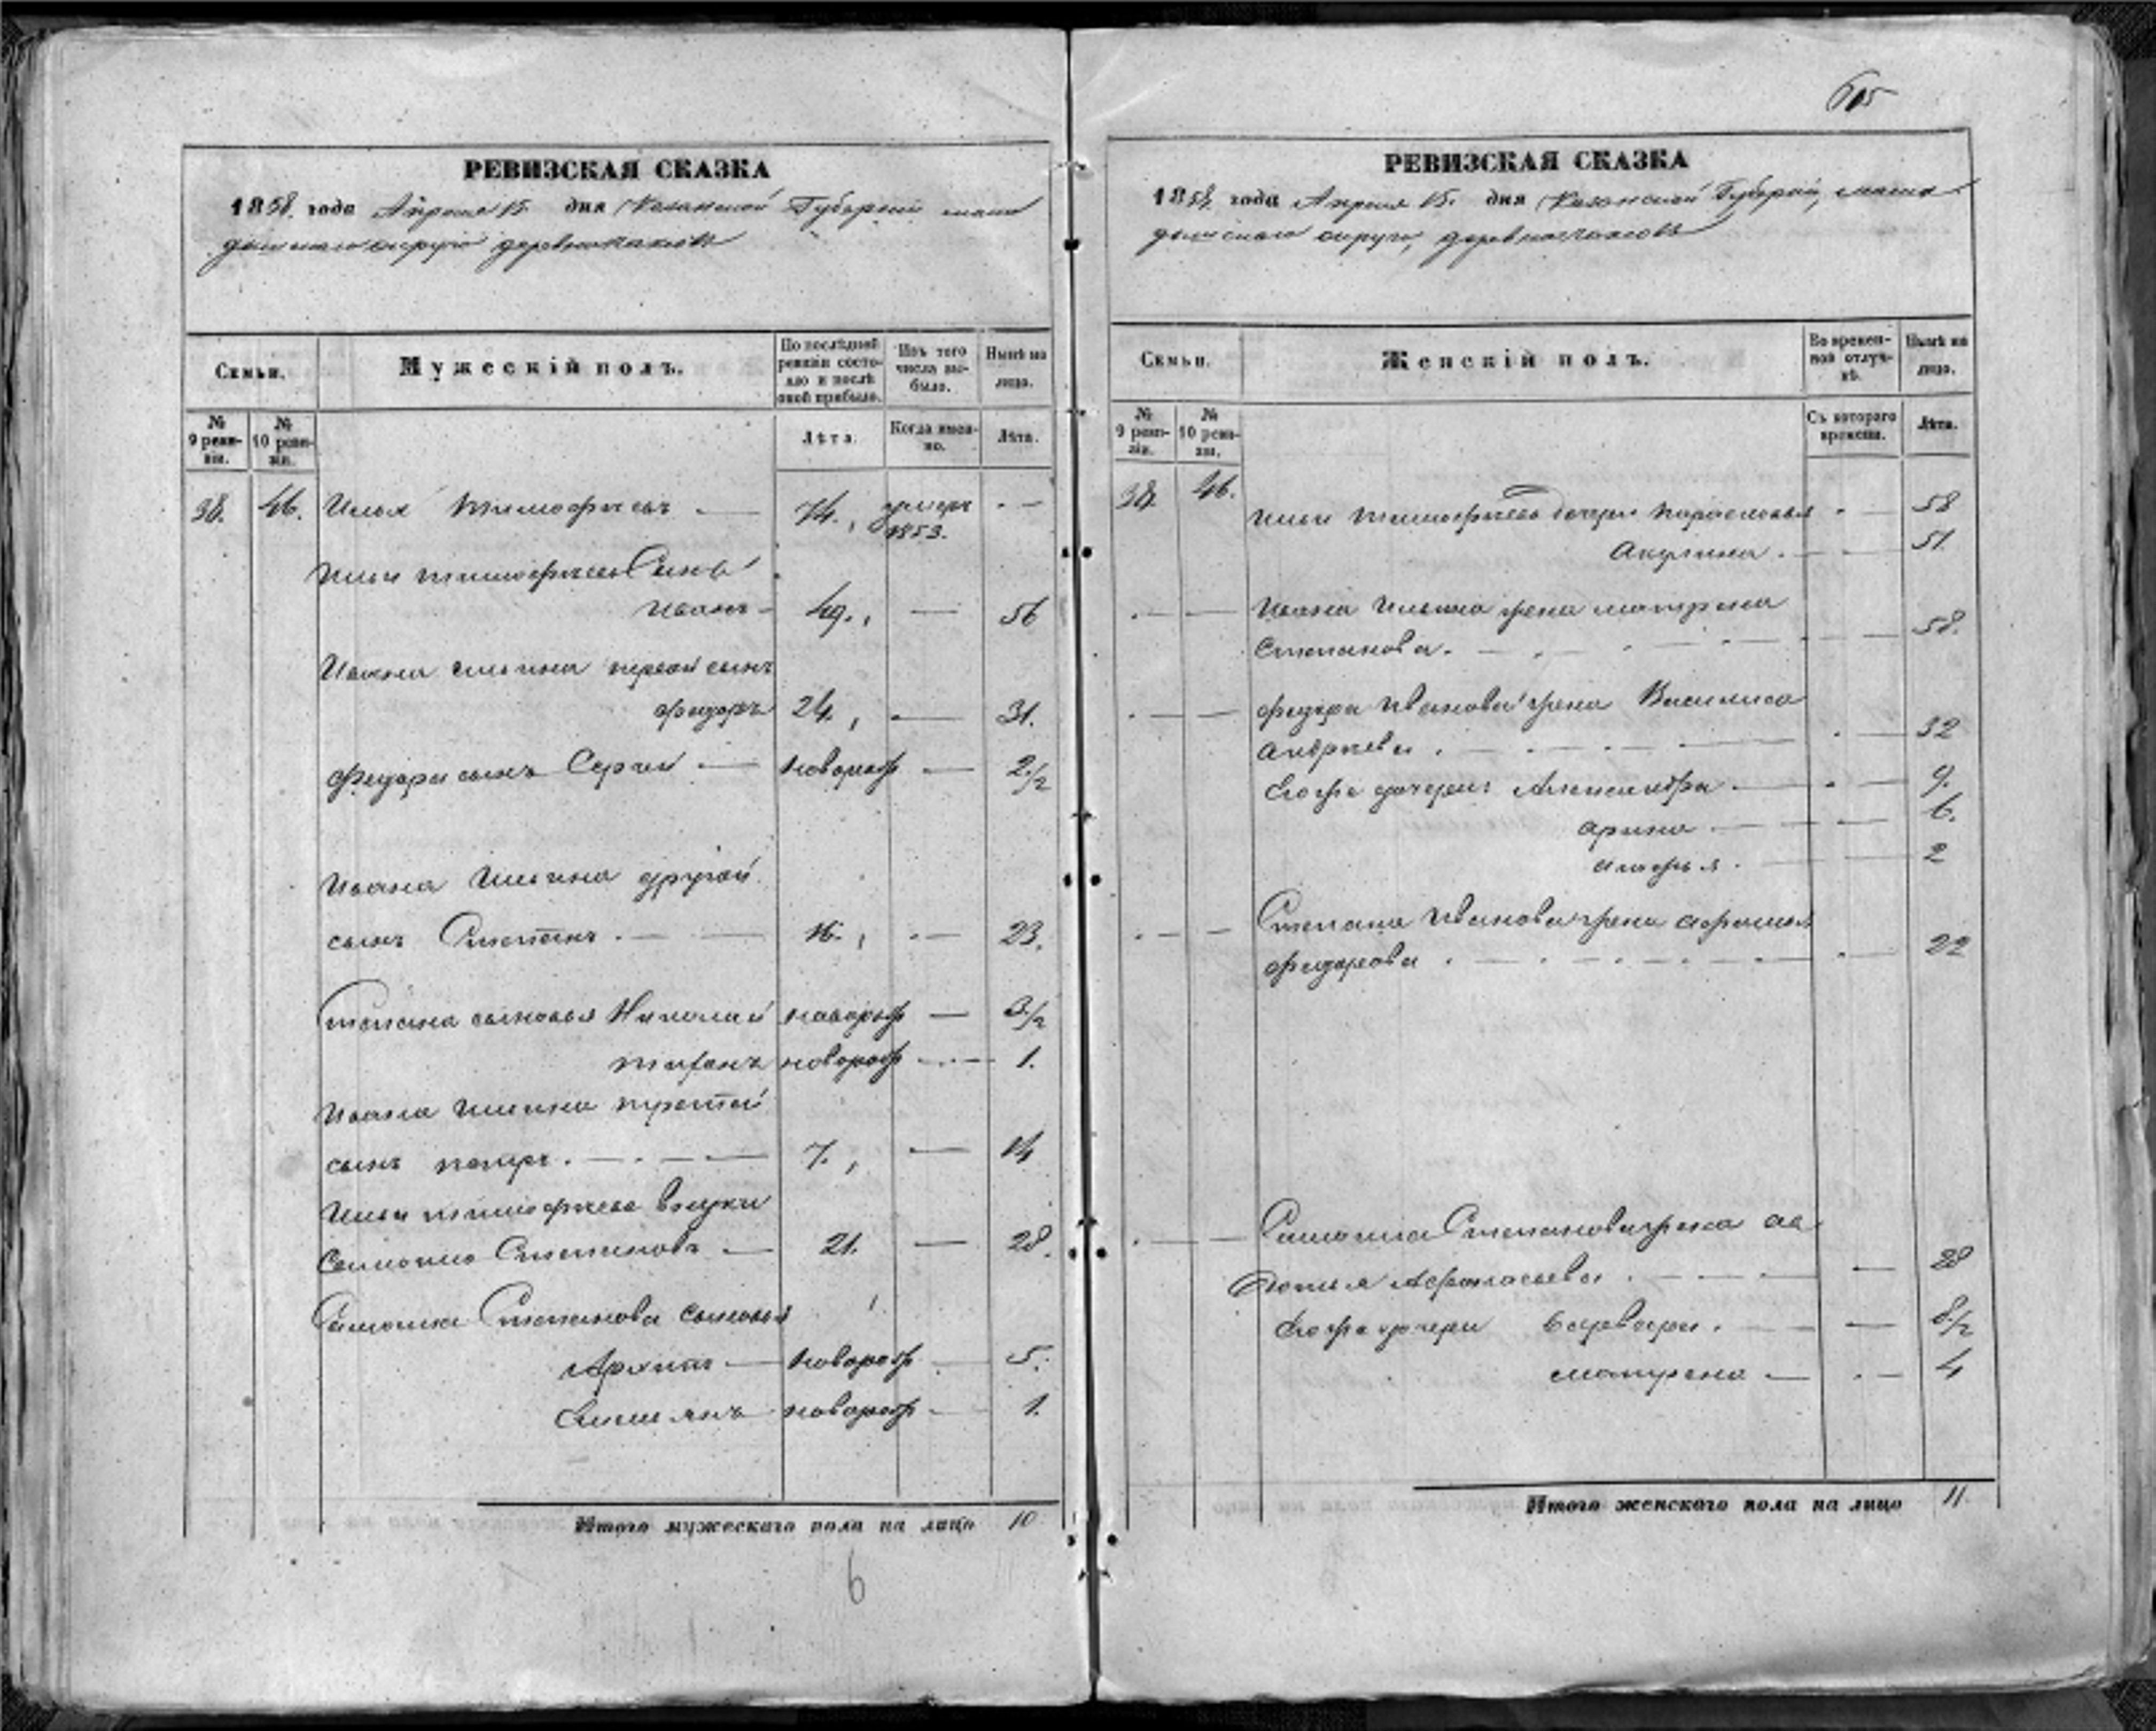 РЕВИЗСКАЯ СКАЗКА
1858 года Апреля 15 дня Казанской Губернии мама
дышскаго округа деревни
Семьи.
Мужескій полъ.
По послѣдней ревизіи состояло и послѣ оной прибыло.
Изъ того числа выбыло.
Нынѣ на лицо.
№ 9 ревизіи.
№ 10 ревизіи.
Лѣта.
Когда именно.
Лѣта.
38. 46. Илья Тимофеевъ — 74. умеръ 1853. —
Ильи Тимофеева Сынъ
Иванъ — 49. — 56
Ивана Ильина первой сынъ
Федоръ 24. — 31.
Федора сынъ Сергей — новорож — 2 1/2
Ивана Ильина другой
сынъ Степанъ — 16. — 23.
Степана сыновья Николай новорож — 3 1/2
новорож — 1.
Ивана Ильина третей
сынъ Петръ — 7. — 14
Ильи Тимофеева внукъ
Степановъ — 21. — 28.
Степанова сыновья
Архипъ — новорож — 5.
новорож — 1.
Итого мужескаго пола на лицо 10
6
605
РЕВИЗСКАЯ СКАЗКА
1858 года Апреля 15 дня Казанской Губернии, мама
дышскаго округа, деревни
Семьи.
Женскій полъ.
Во временной отлучкѣ.
Нынѣ на лицо.
№ 9 ревизіи.
№ 10 ревизіи.
Съ котораго времени.
Лѣта.
38. 46.
Ильи Тимофеева дочери Парасковья — 58
Акулина — 51
Ивана Ильина жена Матрена
Степанова — 58.
Федора Иванова жена Василиса
Андреева — 32
Его же дочери Александра — 9.
Арина — 6.
2
Степана Иванова жена
Федорова — 22
Степанова жена Ав
дотья Афанасьева — 28
Его же дочери Варвара — 8 1/2
Матрена — 4
Итого женскаго пола на лицо 11